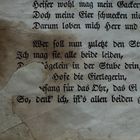 Heiser wohl mag mein Gacker
Doch meine Eier schmecken ni
Darum loben mich Herr und
Wer soll nun zuletzt den St
Ich mag sie alle beide leiden,
Vögelein in der Stube brin
Hofe die Eierlegerin,
sang für das Ohr, das Ei
So, denk' ich, ist's allen beiden